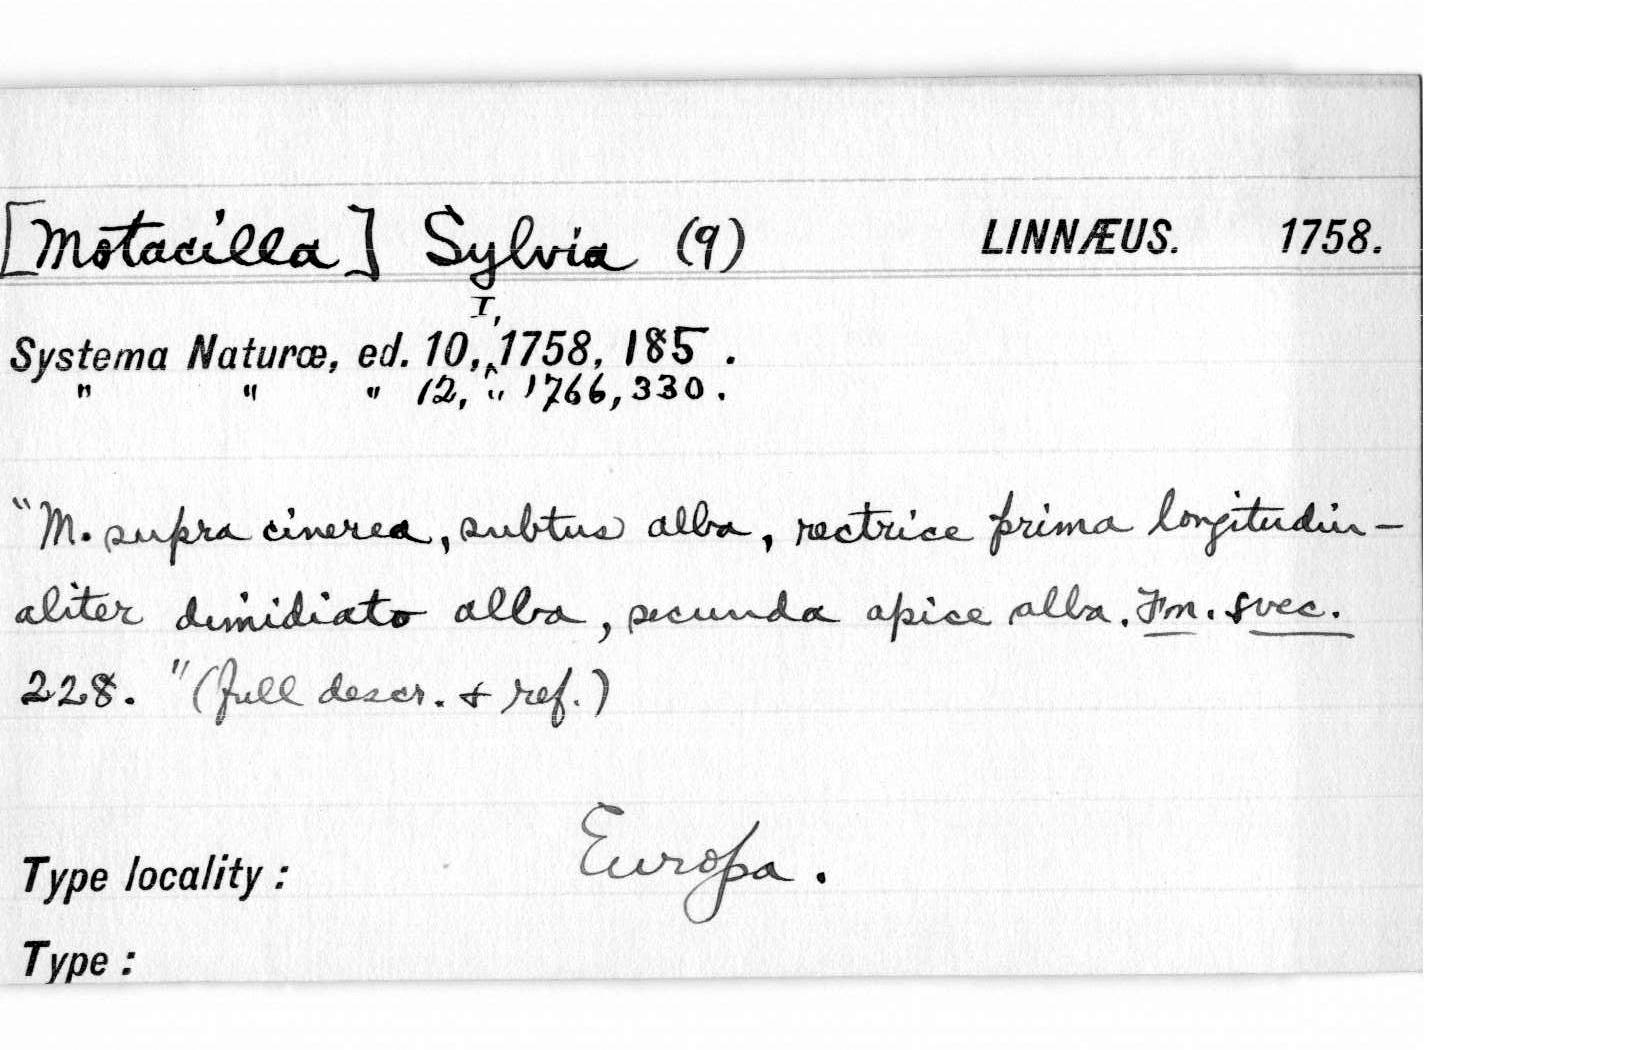 [Motacilla] Sylvia (9) LINNÆUS. 1758.
I,
Systema Naturæ, ed. 10,‸1758, 185.
" " " 12, " 1766, 330.
"M. supra cinerea, subtus alba, rectrice prima longitudin-
aliter dimidiato alba, secunda apice alba. Fn. svec.
228." (full descr. & ref.)
Type locality: Europa.
Type: